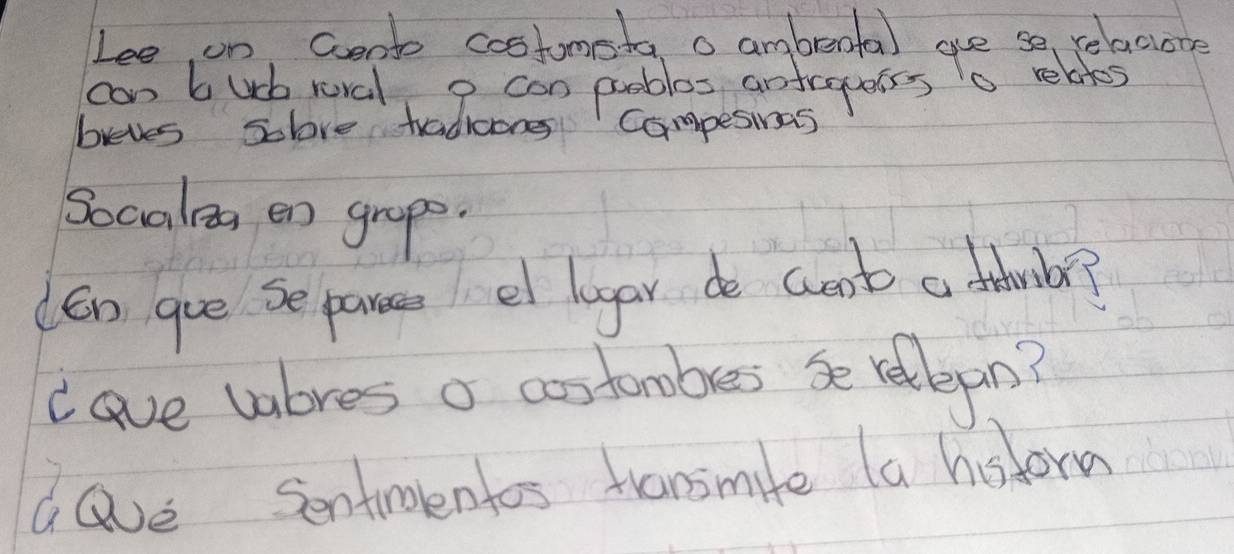 Lee un cuento costumista o ambiental que se relacione
con la vida rural o con pueblos antioqueños o relatos
breves sobre tradiciones campesinas
Socializa en grupo.
¿En que se parece el lugar de cuento a
¿Que valores o costumbres se reflejan?
¿Qué sentimientos transmite la historia